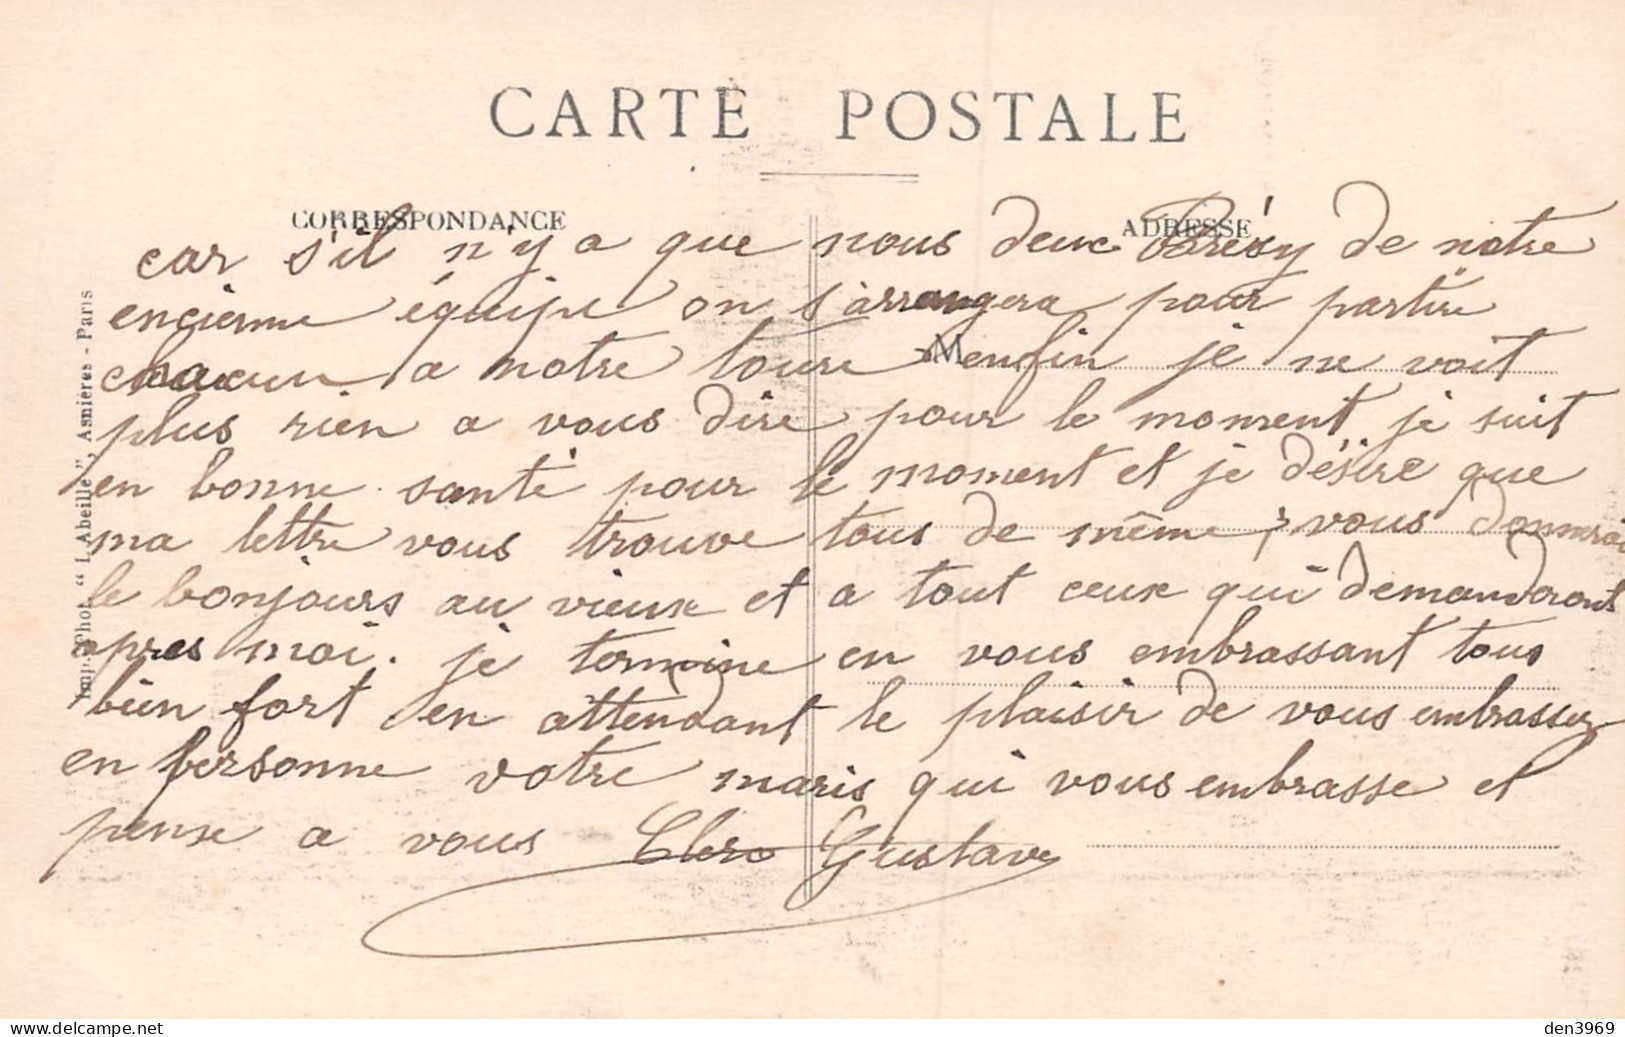 CARTE POSTALE
CORRESPONDANCE
ADRESSE
car s'il n'y a que nous deux Brésy de notre
encienne équipe on s'arrangera pour partire
chaucun a notre toure M enfin je ne voit
plus rien a vous dire pour le moment je suit
en bonne santé pour le moment et je désire que
ma lettre vous trouve tous de même, vous donnerai
le bonjours au vieux et a tout ceux qui demanderont
apres moi. je termine en vous embrassant tous
bien fort en attendant le plaisir de vous embrasser
en personne votre maris qui vous embrasse et
pense a vous Clero Gustave
Imp. Phot. "L'Abeille", Asnières - Paris
delcampe.net
den3969